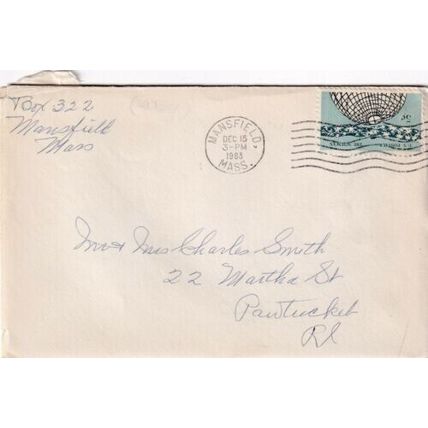 Box 322
Mansfield
Mass
MANSFIELD,
DEC 15
3-PM
1963
MASS.
5c
Mr & Mrs Charles Smith
22 Martha St
Pawtucket
RI